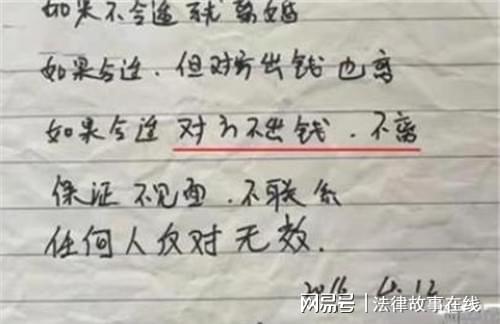 如果不合适就离婚
如果合适.但对方出钱也离
如果合适 对方不出钱.不离
保证不见面.不联系
任何人反对无效.
网易号 | 法律故事在线